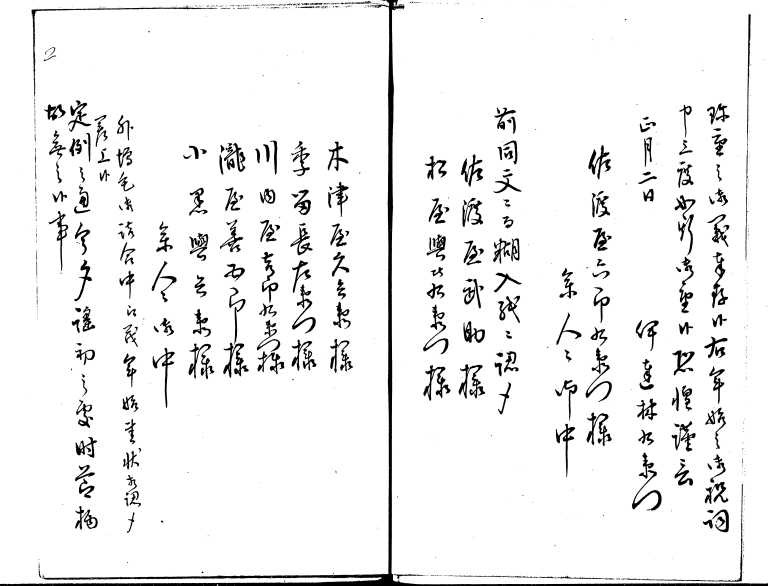 珍重之御義奉存候右年始之御祝詞
申上度如斯御座候恐惶謹言
正月二日　伊達林右衛門
佐渡屋六郎右衛門様
参人々御中
前同文ニ而糊入紙ニ認メ
佐渡屋武助様
松屋與右衛門様
木津屋久兵衛様
季留長左衛門様
川内屋吉郎右衛門様
瀧屋善五郎様
小黒與兵衛様
参人々御中
外場元御談合中江茂年始書状相認メ
差上候
定例之通今夕謡初之處時節柄
故無之候事
2